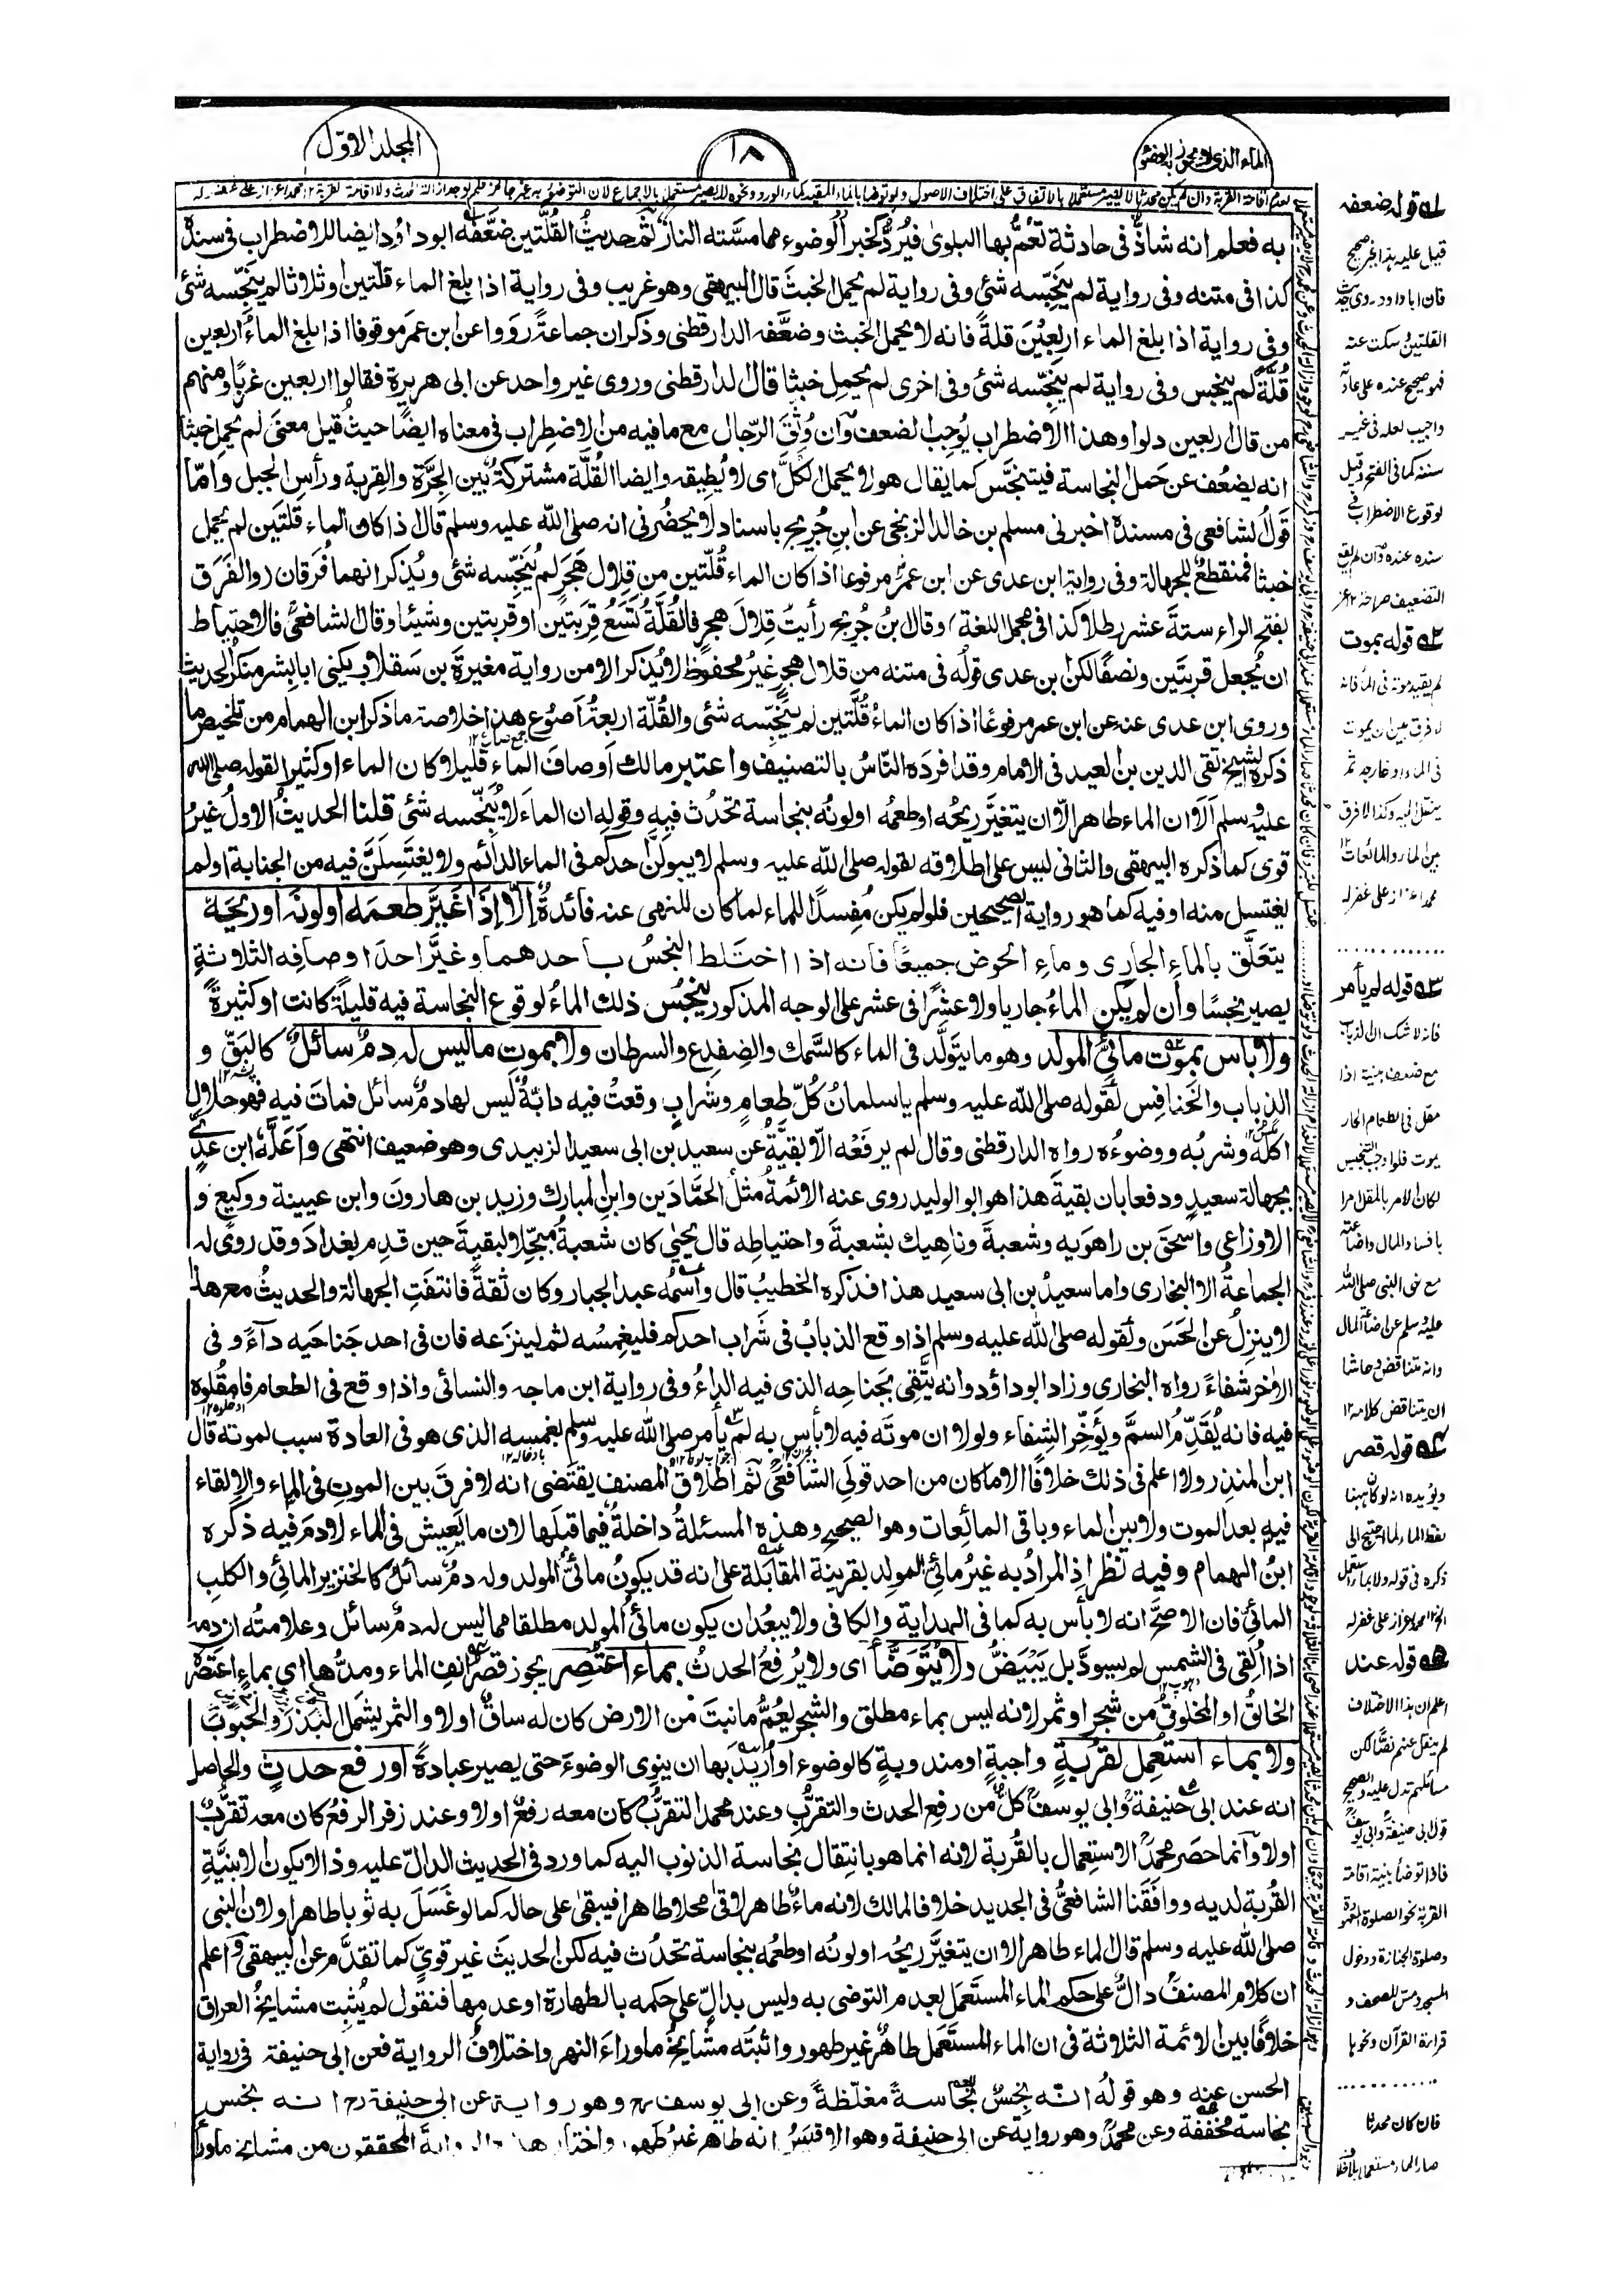 المجلد الاوّل
١٨
الماء الذى لا يجوز به الوضوء
به فعلم انه شاذٌّ فى حادثة تعُمُّ بها البلوىٰ فيُردُّ كخبر الوضوء مما مسَّته النارُ ثم حديثُ القُلَّتين ضعَّفه ابوداؤد ايضا للاضطراب فى سنده
كذا فى متنه وفى رواية لم ينجّسه شئ وفى رواية لم يحمل الخبثَ قال البيهقى وهو غريب وفى رواية اذا بلغ الماء قلّتين او ثلاثا لم ينجّسه شئ
وفى رواية اذا بلغ الماء اربعِيْنَ قلةً فانه لا يحمل الخبث وضعَّفه الدارقطنى وذكران جماعةً رَوَوا عن ابن عمرَ موقوفا اذا بلغ الماءُ اربعين
قُلَّةً لم ينجس وفى رواية لم ينجّسه شئ وفى اخرى لم يحمِل خبثا قال الدارقطنى وروى غير واحد عن ابى هريرة فقالوا اربعين غربًا ومنهم
من قال اربعين دلوا وهذا الاضطراب يُوجِب الضعف وان وُثِّقَ الرّجال مع ما فيه من الاضطِراب فى معناه ايضًا حيثُ قيل معنىٰ لم يحمل خبثا
انه يضعُف عن حَمل النجاسة فيتنجَّس كما يقال هو لا يحمل الكَلَّ اى لا يُطِيقه وايضا القُلَّة مشتركةٌ بين الجَرَّة والقِربة ورأسِ الجبل واَمّا
قَولُ الشافعى فى مسنده اخبرنى مسلم بن خالد الزنجى عن ابنِ جُرَيج باسناد لا يحضُرنى انه صلى الله عليه وسلم قال اذا كان الماء قلتَين لم يحمل
خبثا فمنقطعٌ للجهالة وفى رواية ابن عدى عن ابن عمر مرفوعا اذا كان الماء قُلّتين من قِلال هَجَر لم يُنَجِّسه شئ ويُذكر انهما فُرَقان والفَرَق
بفتح الراء ستةَ عشر رطلا كذا فى مجمل اللغة وقال بنُ جُرَيج رأيتُ قِلالَ هجر فالقُلَّةُ تَسَعُ قِربَتَين او قربتين وشيئا وقال الشافعىُّ فالاحتياط
ان يُجعل قربتَين ونصفًا لكن ابن عدى قولُه فى متنه من قلال هجرٍ غيرُ محفوظٍ لا يُذكر الا من رواية مغيرةَ بن سقلاب يكنى ابا بِشر منكرُ الحديث
وروى ابن عدى عنه عن ابن عمر مرفوعًا اذا كان الماءُ قُلَّتين لم ينجّسه شئ والقُلّة اربعةُ اَصوُع هذا خلاصة ما ذكر ابن الهمام من تلخيص ما
ذكره الشيخ تقى الدين بن العيد فى الامام وقد افردَه النّاسُ بالتصنيف واعتبر مالك اَوصافَ الماء قليلا كان الماء او كثيرا لقوله صلى الله
عليه وسلم اَلاَ ان الماء طاهر الّا ان يتغيَّر ريحُه او طعمُه اولونُه بنجاسة تحدُث فيه وقوله ان الماءَ لا يُنجّسه شئ قلنا الحديثُ الاولُ غيرُ
قوى كما ذكره البيهقى والثانى ليس على اطلاقه لقوله صلى الله عليه وسلم لا يبولَنَّ احدكم فى الماء الدائم ولا يغتَسِلَنَّ فيه من الجنابة اولما
يغتسل منه او فيه كما هو رواية الصحيحين فلو لم يكن مُفسِدًا للماء لما كان للنهى عنه فائدةٌ اِلاّ اِذَا غَيَّرَ طعمَه اولونَه اوريحَه
يتعلَّق بالماءِ الجارِى وماءِ الحوض جميعًا فانه اذا اختَلط النجسُ باحدهما وغيَّر احدَ اوصافِه الثلاثةِ
يصير نجسًا وان لم يكن الماءُ جاريا ولا عشرًا فى عشر على الوجه المذكور ينجُس ذلك الماءُ لوقوع النجاسة فيه قليلةً كانت او كثيرةً
ولا بأس بموتِ مائىِّ المولد وهو ما يتولَّد فى الماء كالسَّمك والضِفدع والسرطان ولا بموتِ ماليس له دمٌ سائلٌ كالبَقِّ و
الذباب والخَنافِس لقوله صلى الله عليه وسلم يا سلمانُ كُلّ طعامٍ وشرابٍ وقعتْ فيه دابّةٌ ليس لها دمٌ سائل فماتَ فيه فهو حلال
اكلُه وشربُه ووضوءُه رواه الدارقطنى وقال لم يرفَعْه الّا بقيَّةُ عن سعيد بن ابى سعيد الزبيدى وهو ضعيف انتهى واَعَلَّه ابن عدى
بجهالة سعيدٍ ودفعا بان بقيةَ هذا هو ابوالوليد روى عنه الائمةُ مثلُ الحمَّادَين وابنِ المبارك وزيد بن هارونَ وابن عيينة ووكيع و
الاوزاعى واسحٰقَ بن راهَوَيه وشعبةَ وناهيك بشعبةَ واحتياطِه قال يحيٰى كان شعبةُ مبجِّلا لبقيةَ حين قدِم بغدادَ وقد روىٰ له
الجماعةُ الا البخارى واما سعيدُ بن ابى سعيد هذا فذكره الخطيبُ قال واسمُه عبد الجبار وكان ثقةً فانتفَتِ الجهالة والحديثُ مع هذا
لا ينزِلُ عن الحَسَن ولقوله صلى الله عليه وسلم اذا وقع الذبابُ فى شَراب احدكم فليغمِسُه ثم لينزعه فان فى احد جَناحَيه داءً و فى
الاخر شفاءً رواه البخارى وزاد ابوداؤد وانه يتَّقى بجَناحِه الذى فيه الداءُ وفى رواية ابن ماجه والنسائى واذا وقع فى الطعام فامقُلوه
فيه فانه يُقَدِّمُ السمَّ ويُؤخِّر الشِفاء ولولا ان موتَه فيه لا بأس به لم يأمر صلى الله عليه وسلم بغمسه الذى هو فى العادة سبب لموته قال
ابن المنذر ولا اعلم فى ذلك خلافًا الا ما كان من احد قولَى الشافعىِّ ثم اطلاقُ المصنف يقتضى انه لا فرقَ بين الموتِ فى الماء والالقاء
فيه بعد الموت ولا بين الماء وباقى المائِعات وهو الصحيح وهذه المسئلةُ داخلةٌ فيما قبلَها لان ما يَعيش فى الماء لا دمَ فيه ذكره
ابنُ الهمام وفيه نظر اذِ المرادُ به غيرُ مائىِّ المولِد بقرينة المقابَلة على انه قد يكونُ مائىُّ المولد وله دمٌ سائلٌ كالخنزير المائى والكلبِ
المائىّ فان الاصحَّ انه لا بأس به كما فى الهداية والكافى ولا يبعُدان يكون مائىُّ المولد مطلقا مما ليس له دمٌ سائل وعلامتُه ان دمه
اذا اُلقى فى الشمس لم يسودَّ بل يَبْيَضُّ ولا يُتوَضَّأ اى ولا يُرفعُ الحدثُ بماء اعتُصِر يجوز قصرُ الف الماء ومدُّها اى بماءٍ اعتصَره
الخالقُ او المخلوقُ من شجر او ثمر لانه ليس بماء مطلق والشجر يعُمُّ ما نبتَ من الارض كان له ساقٌ اولا والثمر يشمَل البَذرَ والحبوبَ
ولا بماء استُعمِل لقُربةٍ واجبةٍ او مندوبةٍ كالوضوء او اُريدَ بها ان ينوى الوضوءَ حتى يصير عبادةً اورفع حدثٍ والحاصل
انه عند ابى حنيفةَ وابى يوسفَ كلٌّ من رفع الحدث والتقرُّبِ وعند محمد التقرُّبُ كان معه رفعٌ اولا وعند زفر الرفعُ كان معه تقرُّبٌ
اولا وانما حصَر محمدٌ الاستِعمال بالقُربة لانه انما هو بانتِقال نجاسة الذنوب اليه كما ورد فى الحديث الدالّ عليه وذا لا يكون الا بنيَّةِ
القُربة لديه ووافَقَنا الشافعىُّ فى الجديد خلافا لمالك لانه ماءٌ طاهر لاقىٰ محلا طاهرا فيبقىٰ على حاله كما لو غَسَلَ به ثوبا طاهرا ولان النبى
صلى الله عليه وسلم قال الماء طاهر الا ان يتغيَّرَ ريحُه اولونُه او طعمُه بنجاسة تحدُث فيه لكن الحديثَ غير قوىٍّ كما تقدَّم عن البيهقى واعلم
ان كلام المصنفِ دالٌّ على حكم الماء المستَعمَل بعدم التوضى به وليس بدالٍّ على حكمه بالطهارة او عدمها فنقول لم يُثبِت مشايخُ العراق
خلافًا بين الائمة الثلاثة فى ان الماء المستَعمَل طاهرٌ غير طهور واثبتَه مشايخُ ماوراءَ النهر واختلافُ الرواية فعن ابى حنيفة فى رواية
الحسن عنه وهو قولُه انه نجِسٌ نجاسةً مغلّظةً وعن ابى يوسف وهو رواية عن ابى حنيفة انه نجس
نجاسة مخففة وعن محمدٍ وهو رواية عن ابى حنيفة وهو الاقيسُ انه طاهر غيرُ طهور واختار المحققون من مشايخ ماوراء
قوله ضعفه
قيل عليه هذا الخبر صحيح
فان اباداود روى حديث
القلتين وسكت عنه
فهو صحيح عنده على عادته
واجيب لعله فى غير
سننه كما فى الفتح وقيل
لوقوع الاضطراب فى
سنده عنده وان لم يقع
التضعيف صراحة ١٢
قوله بموت
لم يقيد موته فى الماء فانه
لا فرق بين ان يموت
فى الماء او خارجه ثم
ينتقل اليه وكذا لا فرق
بين الماء والمائعات ١٢
محمد اعزاز على غفرله
قوله لم يأمر
فانه لا شك ان الذباب
مع ضعف بنيته اذا
مقل فى الطعام الحار
يموت فلو اوجب التنجيس
لكان الامر بالمقل امرا
بافساد المال واضاعته
مع نهى النبى صلى الله
عليه وسلم عن اضاعة المال
وانه متناقض وحاشا
ان يتناقض كلامه ١٢
قوله قصر
ويؤيده انه لو كان ههنا
لفظ الماء لما احتيج الى
ذكره فى قوله ولا بماء استعمل
الخ ١٢ محمد اعزاز على غفرله
قوله عند
اعلم ان هذا الاختلاف
لم ينقل عنهم نصًا لكن
مسائلهم تدل عليه والصحيح
قول ابى حنيفة وابى يوسف
فاذا توضأ بنية اقامة
القربة نحو الصلوة المعهودة
وصلوة الجنازة ودخول
المسجد ومس المصحف و
قراءة القرآن ونحوها
فان كان محدثا
صار الماء مستعملا بلا خلاف